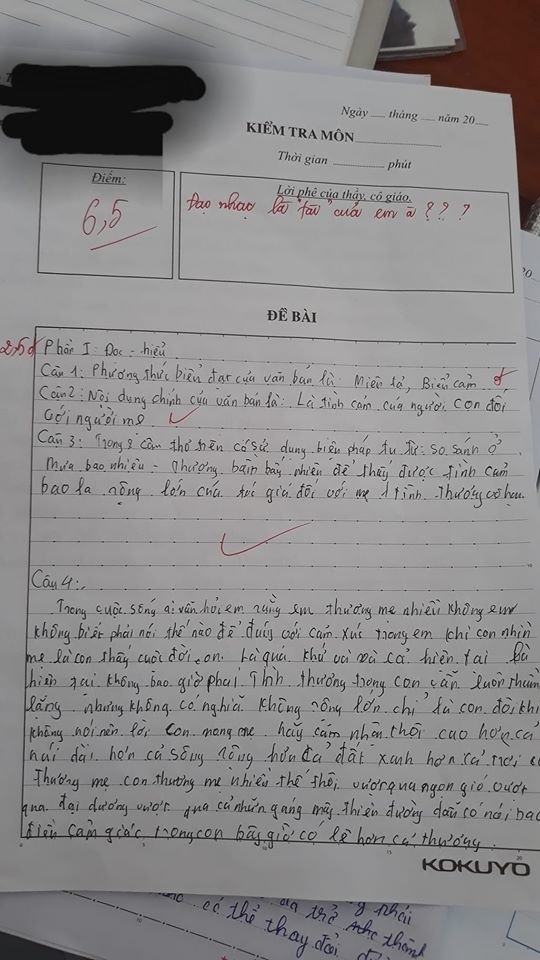 Ngày ___ tháng ___ năm 20___
KIỂM TRA MÔN
Thời gian phút
Điểm:
6,5
Lời phê của thầy, cô giáo.
Đạo nhạc là "tài" của em à ? ? ?
ĐỀ BÀI
2,5đ
Phần I: Đọc - hiểu
Câu 1: Phương thức biểu đạt của văn bản là: Miêu tả, Biểu cảm
Câu 2: Nội dung chính của văn bản là: Là tình cảm của người con đối
với người mẹ
Câu 3: Trong 2 câu thơ trên có sử dụng biện pháp tu từ: so sánh ở
Mưa bao nhiêu - Thương bấy nhiêu để thấy được tình cảm
bao la rộng lớn của tác giả đối với mẹ 1 tình thương vô hạn
Câu 4:
Trong cuộc sống ai vẫn hỏi em rằng em thương mẹ nhiều không em
không biết phải nói thế nào để đúng với cảm xúc trong em khi con nhìn
mẹ là con thấy cuộc đời con. Là quá khứ và cả hiện tại là
hiện tại không bao giờ phai. Tình thương trong con vẫn luôn thầm
lặng nhưng không có nghĩa không rộng lớn chỉ là con đôi khi
không nói nên lời con mong mẹ hãy cảm nhận thôi cao hơn cả
núi dài hơn cả sông rộng hơn cả đất xanh hơn cả trời
Thương mẹ con thương mẹ nhiều thế thôi vượt qua ngọn gió vượt
qua đại dương vượt qua cả những áng mây thiên đường dẫu có nói bao
điều cảm giác trong con bây giờ có lẽ hơn cả thương.
KOKUYO
có thể thay đổi